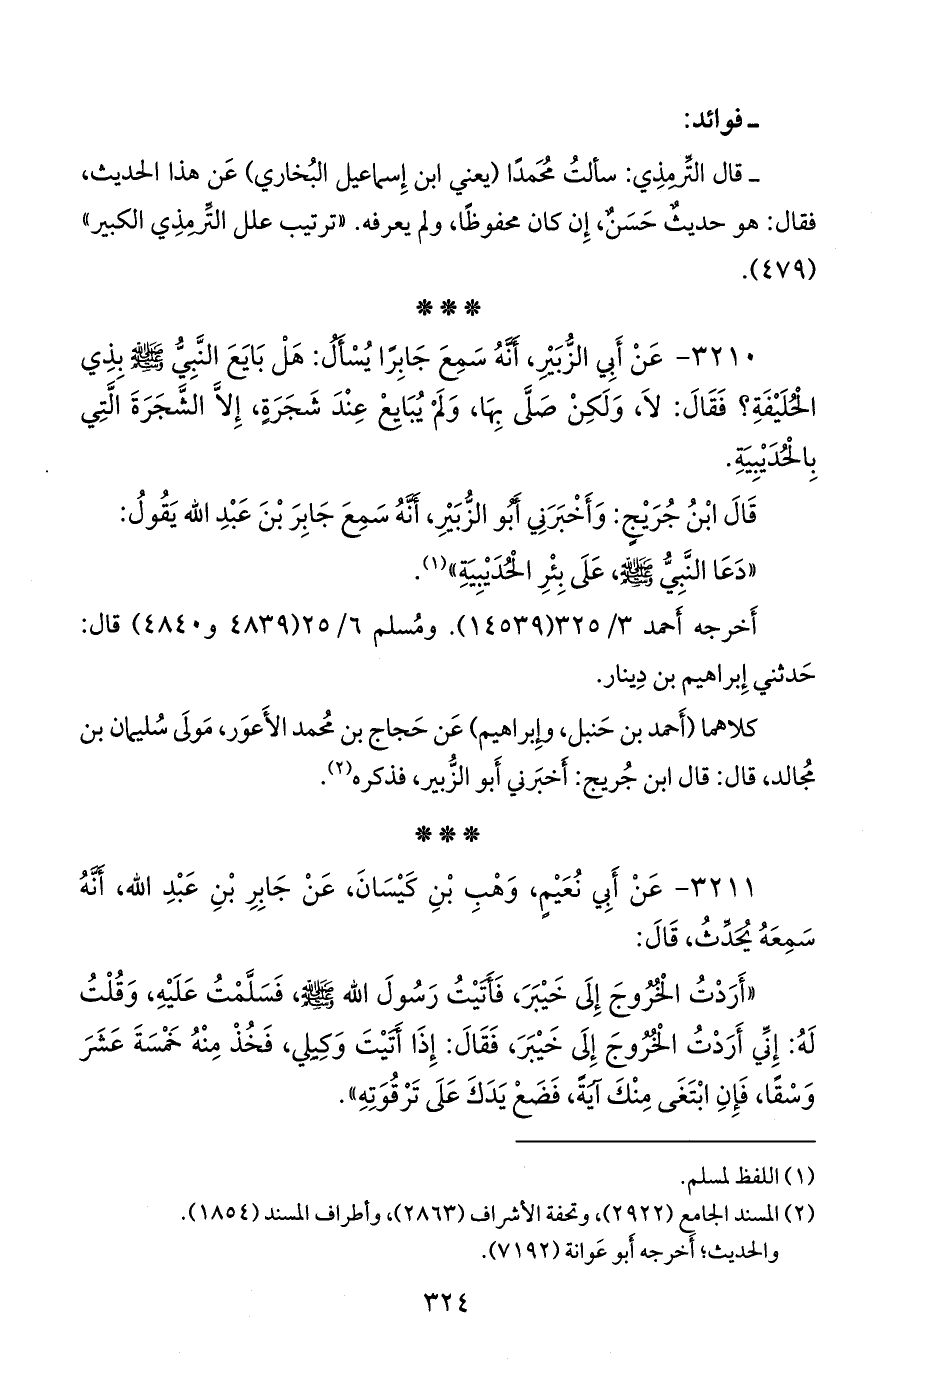 ـ فوائد:
ـ قال التِّرمِذي: سألتُ مُحَمدًا (يعني ابن إِسماعيل البُخاري) عَن هذا الحديث،
فقال: هو حديثٌ حَسَنٌ، إِن كان محفوظًا، ولم يعرفه. «ترتيب علل التِّرمِذي الكبير»
(٤٧٩).
* * *
٣٢١٠- عَنْ أَبِي الزُّبَيْرِ، أَنَّهُ سَمِعَ جَابِرًا يُسْأَلُ: هَلْ بَايَعَ النَّبِيُّ ﷺ بِذِي
الْحُلَيْفَةِ؟ فَقَالَ: لاَ، وَلَكِنْ صَلَّى بِهَا، وَلَمْ يُبَايِعْ عِنْدَ شَجَرَةٍ، إِلاَّ الشَّجَرَةَ الَّتِي
بِالْحُدَيْبِيَةِ.
قَالَ ابْنُ جُرَيْجٍ: وَأَخْبَرَنِي أَبُو الزُّبَيْرِ، أَنَّهُ سَمِعَ جَابِرَ بْنَ عَبْدِ الله يَقُولُ:
«دَعَا النَّبِيُّ ﷺ، عَلَى بِئْرِ الْحُدَيْبِيَةِ»(١).
أَخرجه أَحمد ٣/ ٣٢٥(١٤٥٣٩). ومُسلم ٦/ ٢٥(٤٨٣٩ و٤٨٤٠) قال:
حَدثني إِبراهيم بن دِينار.
كلاهما (أَحمد بن حَنبل، وإِبراهيم) عَن حَجاج بن مُحمد الأَعوَر، مَولَى سُليمان بن
مُجالد، قال: قال ابن جُريج: أَخبَرني أَبو الزُّبير، فذكره(٢).
* * *
٣٢١١- عَنْ أَبِي نُعَيْمٍ، وَهْبِ بْنِ كَيْسَانَ، عَنْ جَابِرِ بْنِ عَبْدِ الله، أَنَّهُ
سَمِعَهُ يُحَدِّثُ، قَالَ:
«أَرَدْتُ الْخُرُوجَ إِلَى خَيْبَرَ، فَأَتَيْتُ رَسُولَ الله ﷺ، فَسَلَّمْتُ عَلَيْهِ، وَقُلْتُ
لَهُ: إِنِّي أَرَدْتُ الْخُرُوجَ إِلَى خَيْبَرَ، فَقَالَ: إِذَا أَتَيْتَ وَكِيلِي، فَخُذْ مِنْهُ خَمْسَةَ عَشَرَ
وَسْقًا، فَإِنِ ابْتَغَى مِنْكَ آيَةً، فَضَعْ يَدَكَ عَلَى تَرْقُوَتِهِ».
(١) اللفظ لمسلم.
(٢) المسند الجامع (٢٩٢٢)، وتحفة الأشراف (٢٨٦٣)، وأطراف المسند (١٨٥٤).
والحديث؛ أَخرجه أَبو عَوانة (٧١٩٢).
٣٢٤